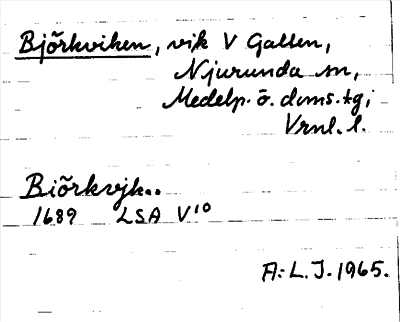 Björkviken, vik V Galten,
Njurunda sn,
Medelp. ö. doms. tg;
Vrnl. l.
Biörkvjk..
1689 LSA V¹⁰
A:L.J. 1965.